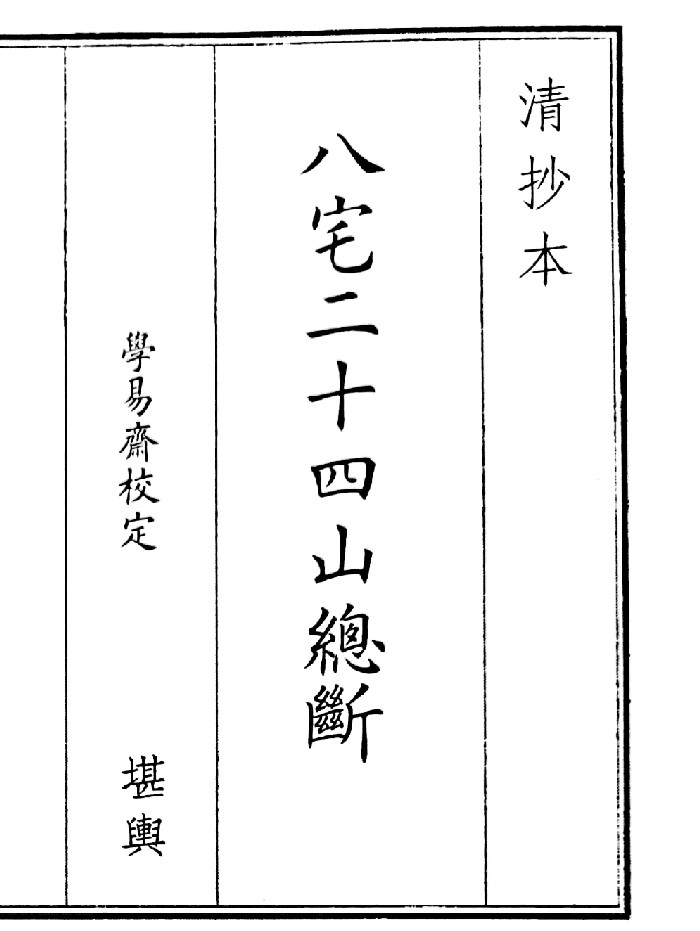 清抄本
八宅二十四山總斷
學易齋校定
堪輿